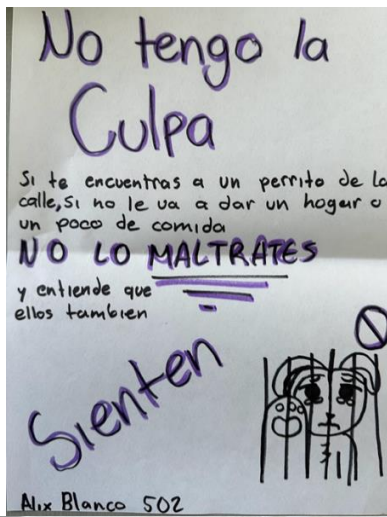 No tengo la
Culpa
Si te encuentras a un perrito de la
calle, si no le va a dar un hogar o
un poco de comida
NO LO MALTRATES
y entiende que
ellos tambien
Sienten
Alix Blanco 502